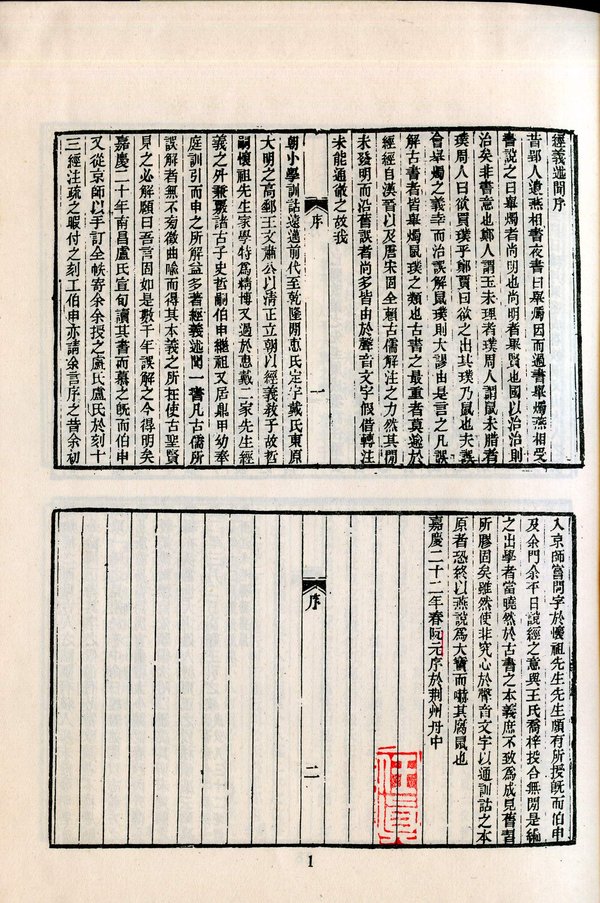 經義述聞序
昔郢人遺燕相書夜書曰舉燭因而過書舉燭燕相受
書說之曰舉燭者尚明也尚明者舉賢也國以治治則
治矣非書意也鄭人謂玉未理者璞周人謂鼠未腊者
璞周人曰欲買璞乎鄭賈曰欲之出其璞乃鼠也夫誤
會舉燭之義幸而治誤解鼠璞則大謬由是言之凡誤
解古書者皆舉燭鼠璞之類也古書之最重者莫逾於
經經自漢晉以及唐宋固全賴古儒解注之力然其閒
未發明而沿舊誤者尚多皆由於聲音文字假借轉注
未能通徹之故我
序
一
朝小學訓詁遠邁前代至乾隆閒惠氏定宇戴氏東原
大明之高郵王文肅公以清正立朝以經義教子故哲
嗣懷祖先生家學特為精博又過於惠戴二家先生經
義之外兼覈諸古子史哲嗣伯申繼祖又居鼎甲幼奉
庭訓引而申之所解益多著經義述聞一書凡古儒所
誤解者無不旁徵曲喻而得其本義之所在使古聖賢
見之必解頤曰吾言固如是數千年誤解之今得明矣
嘉慶二十年南昌盧氏宣旬讀其書而慕之旣而伯申
又從京師以手訂全帙寄余余授之盧氏盧氏於刻十
三經注疏之暇付之刻工伯申亦請余言序之昔余初
入京師嘗問字於懷祖先生先生頗有所授旣而伯申
及余門余平日說經之意與王氏喬梓投合無閒是編
之出學者當曉然於古書之本義庶不致為成見舊習
所膠固矣雖然使非究心於聲音文字以通訓詁之本
原者恐終以燕說為大寶而嚇其腐鼠也
嘉慶二十二年春阮元序於荊州舟中
序
二
1